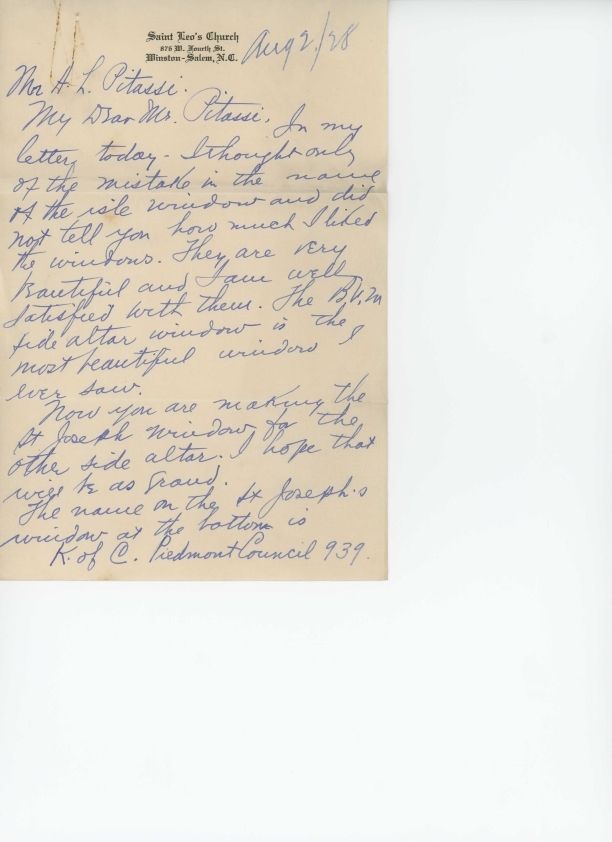 Saint Leo's Church
876 W. Fourth St.
Winston-Salem, N.C.
Aug 2/28
Mr A. L. Pitassi.
My Dear Mr. Pitassi. In my
letter today - I thought only
of the mistake in the name
of the isle window and did
not tell you how much I liked
the windows. They are very
beautiful and I am well
satisfied with them. The B.V.M
side altar window is the
most beautiful window I
ever saw.
Now you are making the
St Joseph window for the
other side altar. I hope that
will be as grand.
The name on the St Joseph's
window at the bottom is
K. of C. Piedmont Council 939.